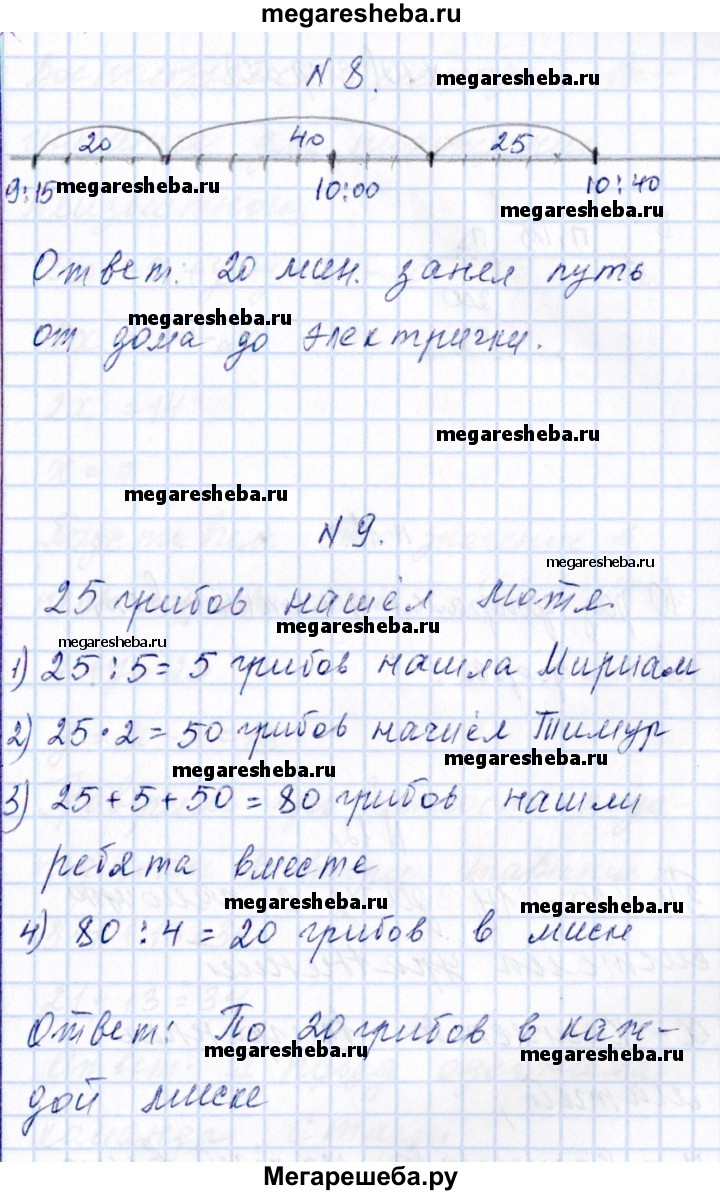 megaresheba.ru
N 8.
megaresheba.ru
20 40 25
9:15 megaresheba.ru 10:00 10:40
megaresheba.ru
Ответ: 20 мин. занял путь
megaresheba.ru
от дома до электрички.
megaresheba.ru
megaresheba.ru
N 9.
megaresheba.ru
25 грибов нашёл Мотя.
megaresheba.ru
megaresheba.ru
1) 25 : 5 = 5 грибов нашла Мириам
2) 25 · 2 = 50 грибов нашёл Тимур
megaresheba.ru
megaresheba.ru
3) 25 + 5 + 50 = 80 грибов нашли
ребята вместе
megaresheba.ru
megaresheba.ru
4) 80 : 4 = 20 грибов в миске
Ответ: По 20 грибов в каж-
megaresheba.ru
megaresheba.ru
дой миске
Мегарешеба.ру